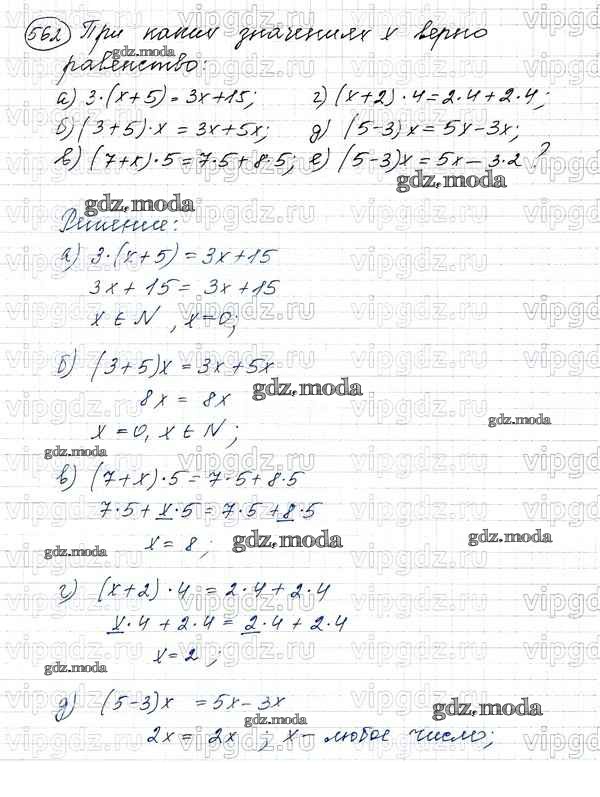 562 При каких значениях x верно
равенство:
а) 3·(x+5)=3x+15; г) (x+2)·4=2·4+2·4;
б) (3+5)·x = 3x+5x; д) (5-3)x=5x-3x;
в) (7+x)·5=7·5+8·5; е) (5-3)x=5x-3·2 ?
Решение:
а) 3·(x+5)=3x+15
3x+15=3x+15
x ∈ N, x=0;
б) (3+5)x = 3x+5x
8x = 8x
x=0, x ∈ N;
в) (7+x)·5=7·5+8·5
7·5+x·5=7·5+8·5
x=8;
г) (x+2)·4 = 2·4+2·4
x·4+2·4=2·4+2·4
x=2;
д) (5-3)x =5x-3x
2x = 2x ; x - любое число;
gdz.moda
vipgdz.ru